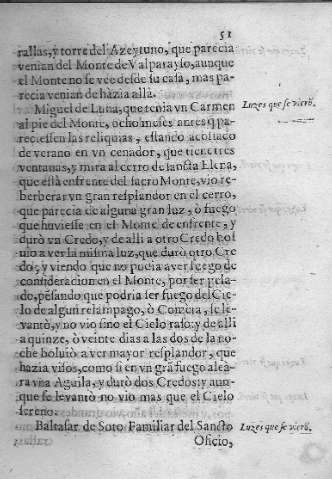 51
rallas, y torre del Azeytuno, que parecia
venian del Monte de Valparayso, aunque
el Monte no se vee desde su casa, mas pa-
recia venian de hàzia allà.
Miguel de Luna, que tenia vn Carmen
Luzes que se vierõ.
al pie del Monte, ocho meses antes q̃ pa-
reciessen las reliquias, estando acostado
de verano en vn cenador, que tiene tres
ventanas, y mira al cerro de sancta Elena,
que està enfrente del sacro Monte, vio re-
berberar vn gran resplandor en el cerro,
que parecia de alguna gran luz, ò fuego
que huviesse en el Monte de enfrente, y
durò vn Credo, y de alli a otro Credo bol
uio a ver la misma luz, que duro otro Cre
do; y viendo que no podia aver fuego de
consideracion en el Monte, por ser pela-
do, pẽsando que podria ser fuego del Cie-
lo de algun relampago, ò Cometa, se le-
vantò, y no vio sino el Cielo raso: y de alli
a quinze, ò veinte dias a las dos de la no-
che boluiò a ver mayor resplandor, que
hazia visos, como si en vn grã fuego aleà-
ra vna Aguila, y durò dos Credos: y aun-
que se levantò no vio mas que el Cielo
sereno.
Baltasar de Soto Familiar del Sancto
Luzes que se vierõ.
Oficio,